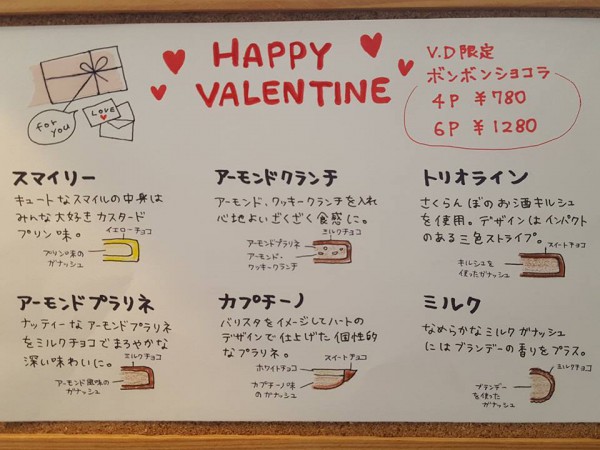 HAPPY
VALENTINE
for
you
LOVE
V.D限定
ボンボンショコラ
4P ¥780
6P ¥1280
スマイリー
キュートなスマイルの中身は
みんな大好きカスタード
プリン味。
イエローチョコ
プリン味の
ガナッシュ
アーモンドクランチ
アーモンド、クッキークランチを入れ
心地よいざくざく食感に。
ミルクチョコ
アーモンドプラリネ
アーモンド・
クッキークランチ
トリオライン
さくらんぼのお酒キルシュ
を使用。デザインはインパクト
のある三色ストライプ。
スイートチョコ
キルシュを
使ったガナッシュ
アーモンドプラリネ
ナッティーなアーモンドプラリネ
をミルクチョコでまろやかな
深い味わいに。
ミルクチョコ
アーモンド風味の
ガナッシュ
カプチーノ
バリスタをイメージしてハートの
デザインで仕上げた個性的
なプラリネ。
スイートチョコ
ホワイトチョコ
カプチーノ味
のガナッシュ
ミルク
なめらかなミルクガナッシュ
にはブランデーの香りをプラス。
ミルクチョコ
ブランデー
を使った
ガナッシュ